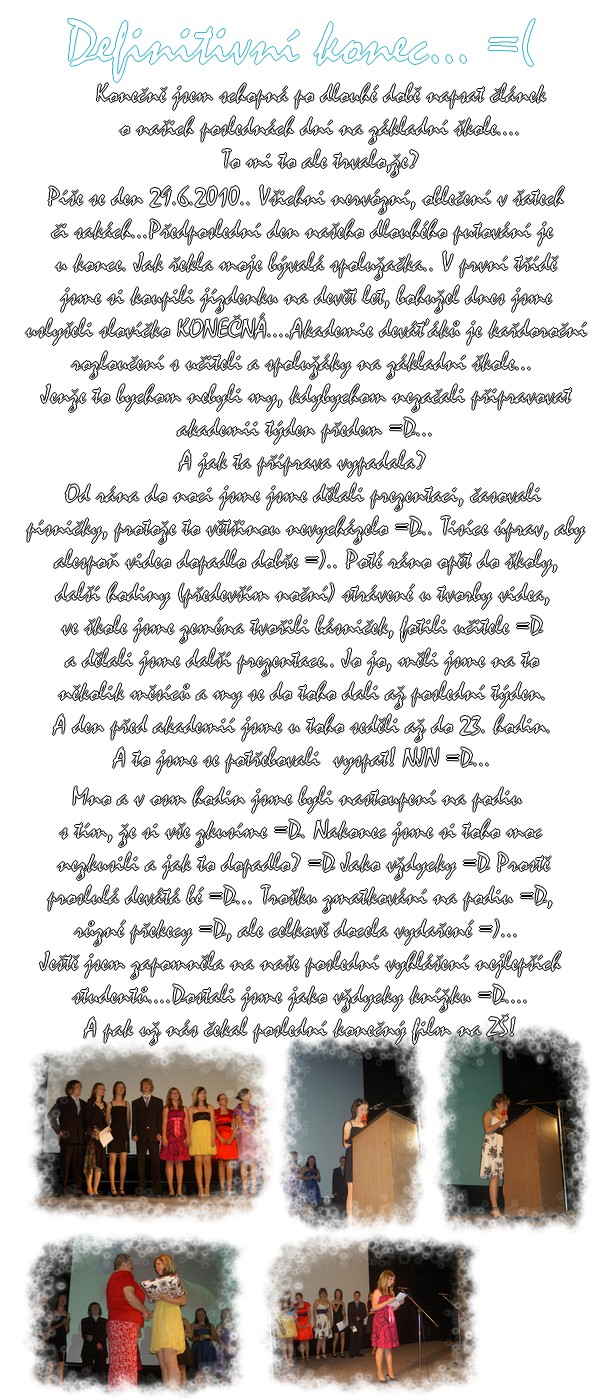 Definitivní konec... =(
Konečně jsem schopná po dlouhé době napsat článek
o našich poslednách dní na základní škole....
To mi to ale trvalo,že?
Píše se den 29.6.2010.. Všichni nervózní, oblečení v šatech
či sakách...Předposlední den našeho dlouhého putování je
u konce. Jak řekla moje bývalá spolužačka.. V první třídě
jsme si koupili jízdenku na devět let, bohužel dnes jsme
uslyšeli slovíčko KONEČNÁ....Akademie deváťáků je každoroční
rozloučení s učiteli a spolužáky na základní škole...
Jenže to bychom nebyli my, kdybychom nezačali připravovat
akademii týden předem =D...
A jak ta příprava vypadala?
Od rána do noci jsme jsme dělali prezentaci, časovali
písničky, protože to většinou nevycházelo =D.. Tisíce úprav, aby
alespoň video dopadlo dobře =).. Poté ráno opět do školy,
další hodiny (především noční) strávené u tvorby videa,
ve škole jsme zeména tvořili básniček, fotili učitele =D
a dělali jsme další prezentace.. Jo jo, měli jsme na to
několik měsíců a my se do toho dali až poslední týden.
A den před akademií jsme u toho seděli až do 23. hodin.
A to jsme se potřebovali vyspat! NJN =D...
Mno a v osm hodin jsme byli nastoupení na podiu
s tím, že si vše zkusíme =D. Nakonec jsme si toho moc
nezkusili a jak to dopadlo? =D Jako vždycky =D Prostě
proslulá devátá bé =D... Trošku zmatkování na podiu =D,
různé překecy =D, ale celkově docela vydařené =)...
Ještě jsem zapomněla na naše poslední vyhlášení nejlepších
studentů....Dostali jsme jako vždycky knížku =D....
A pak už nás čekal poslední konečný film na ZŠ!